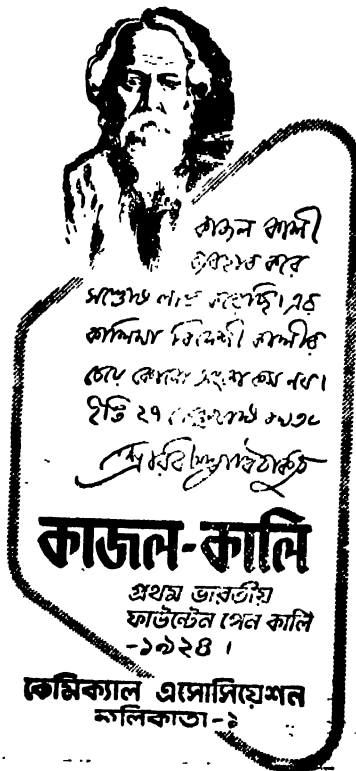 কাজল কালী
ব্যবহার করে
সন্তোষ লাভ করেছি। এর
কালিমা বিদেশী কালীর
চেয়ে কোনো অংশে কম নয়।
ইতি ২৭
শ্রীরবীন্দ্রনাথ ঠাকুর
কাজল-কালি
প্রথম ভারতীয়
ফাউন্টেন পেন কালি
-১৯২৪ ।
কেমিক্যাল এসোসিয়েশন
কলিকাতা-১